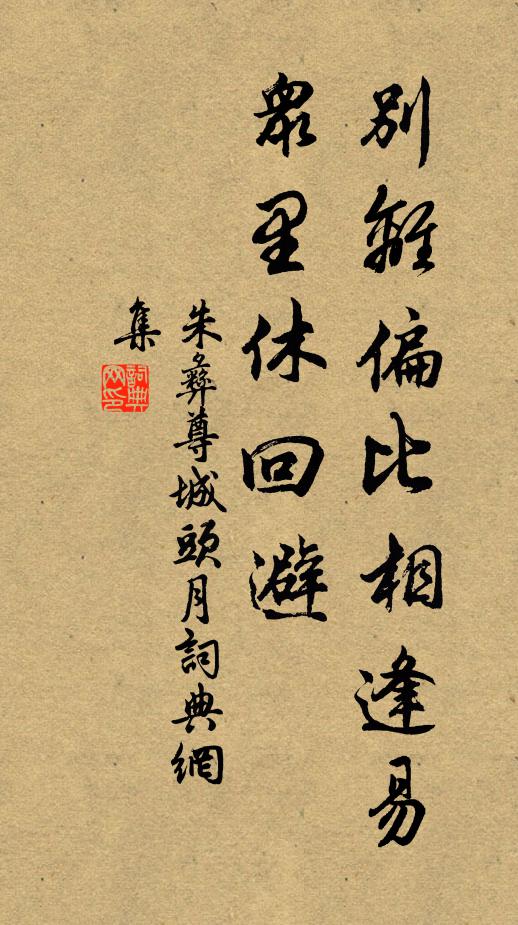 別離偏比相逢易
眾里休回避
朱彝尊城頭月詞典網
集
詞典
网印